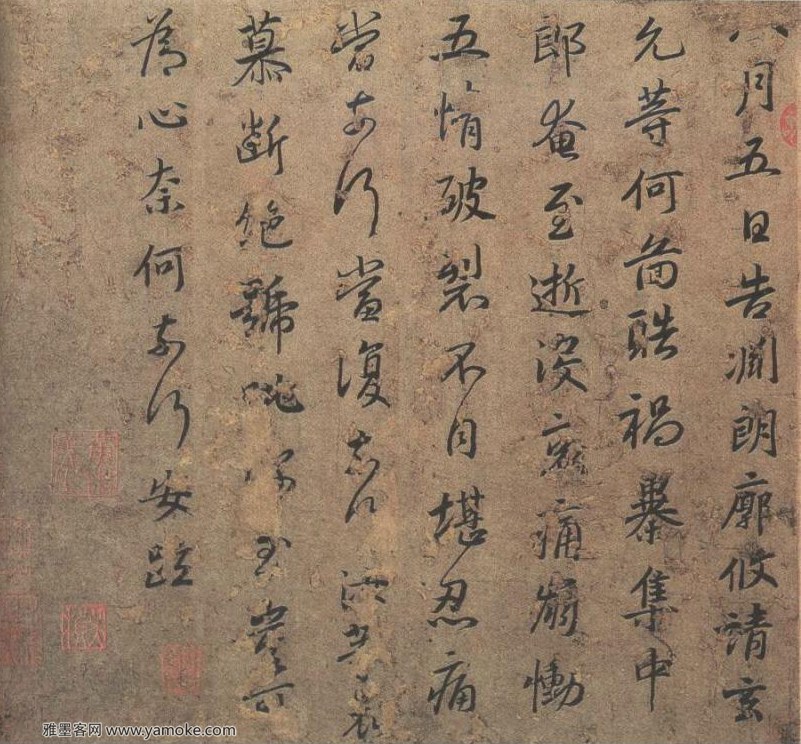 八月五日告淵朗廓攸靖玄
允等何圖酷禍暴集中
郎奄至逝沒哀痛崩慟
五情破裂不自堪忍痛
當奈何當復奈何汝等哀
慕斷絕號咷深至豈可
為心奈何奈何安疏
雅墨客网 www.yamoke.com